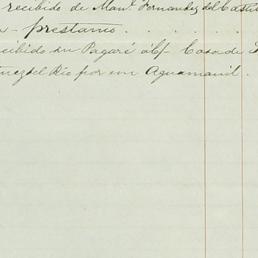 recibido de Man.l Fernandez del Casti
prestamo . . . . . .
cibido su Pagaré á/f Casa de
del Rio por un Aguamanil .